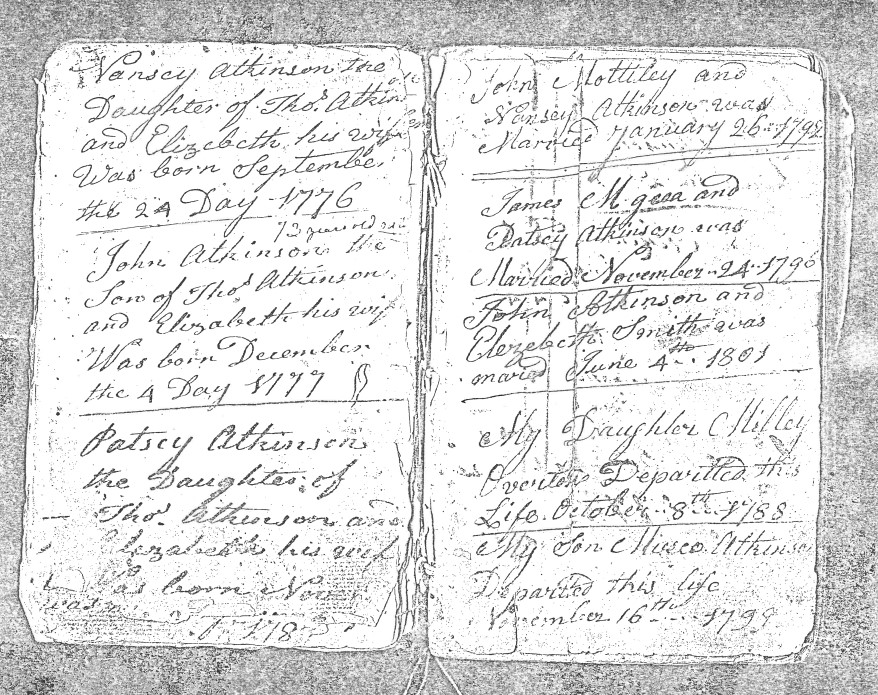 Nansey Atkinson the
Daughter of Thos. Atkin
and Elizebeth his wife
Was born September
the 24 Day 1776
John Atkinson the
Son of Thos Atkinson
and Elizabeth his wif
Was born December
the 4 Day 1777
Patsey Atkinson
the Daughter of
Thos. Atkinson and
Elezabeth his wif
Was born Novem
178
John Mottley and
Nansey Atkinson was
Married January 26 179
James M geea and
Patsey Atkinson was
Married November 24 1796
John Atkinson and
Elezebeth Smith was
maried June 4th 1801
My Daughter Milley
Overton Departted this
Life October 8th 1788
My Son Musco Atkinson
Departed this life
November 16th 1799